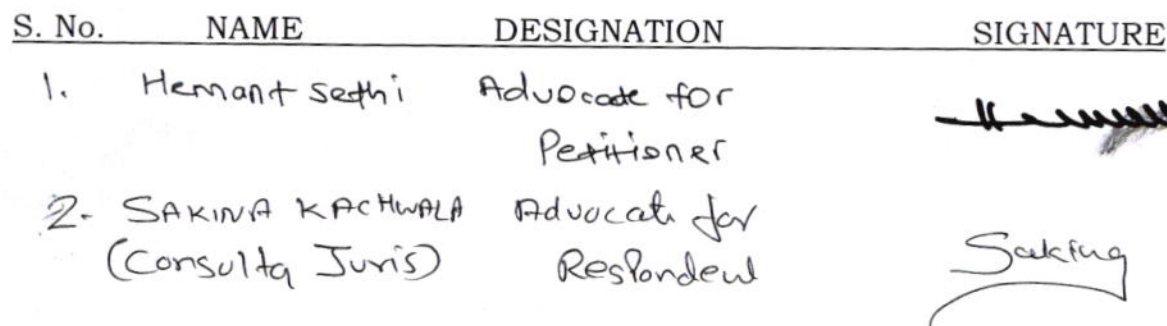 S. No. NAME DESIGNATION SIGNATURE
1. Hemant sethi Advocate for
Petitioner
2- SAKINA KACHWALA Advocate for
(Consulta Juris) Respondent
Sakina